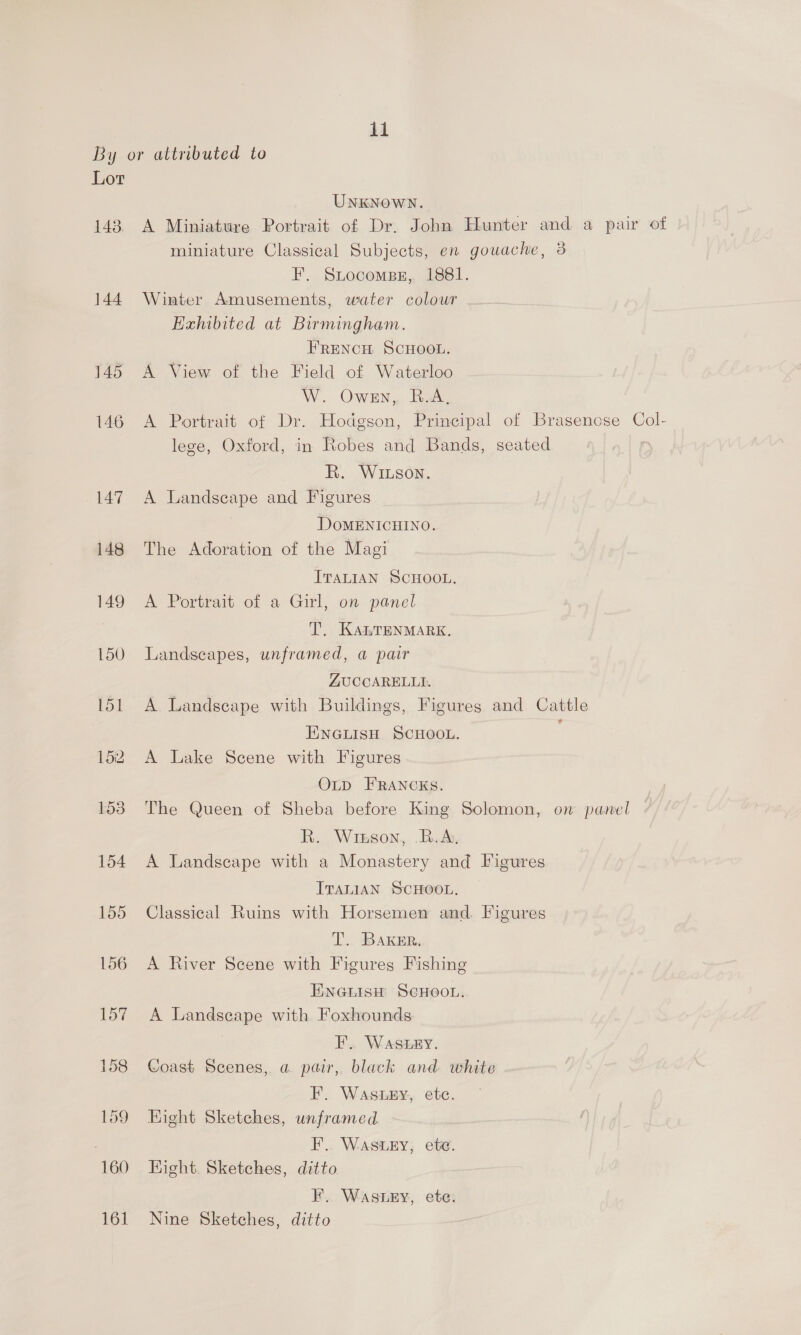 11
By or attributed to
Lot
UNKNOWN.
143 A Miniature Portrait of Dr. John Hunter and a pair of
miniature Classical Subjects, en gouache, 3
F. SLOCOMBE, 1881.
144 Winter Amusements, water colour
Exhibited at Birmingham.
FRENCH SCHOOL.
145 A View of the Field of Waterloo
W. OWEN, R.A.
146 A Portrait of Dr. Hodgson, Principal of Brasenose Col-
lege, Oxford, in Robes and Bands, seated
R. WILSON.
147 A Landscape and Figures
DOMENICHINO.
148 The Adoration of the Magi
ITALIAN SCHOOL.
149 A Portrait of a Girl, on panel
T. KALTENMARK.
150 Landscapes, unframed, a pair
ZUCCARELLI.
151 A Landscape with Buildings, Figures and Cattle
ENGLISH SCHOOL.
152 A Lake Scene with Figures
OLD FRANCKS.
153 The Queen of Sheba before King Solomon, on panel
R. WILSON, R.A.
154 A Landscape with a Monastery and Figures
ITALIAN SCHOOL.
155 Classical Ruins with Horsemen and Figures
T. BAKER.
156 A River Scene with Figures Fishing
ENGLISH SCHOOL.
157 A Landscape with Foxhounds
F. WASLEY.
158 Coast Scenes, a pair, black and white
F. WASLEY, etc.
159 Eight Sketches, unframed
F. WASLEY, etc.
160 Eight Sketches, ditto
F. WASLEY, etc.
161 Nine Sketches, ditto